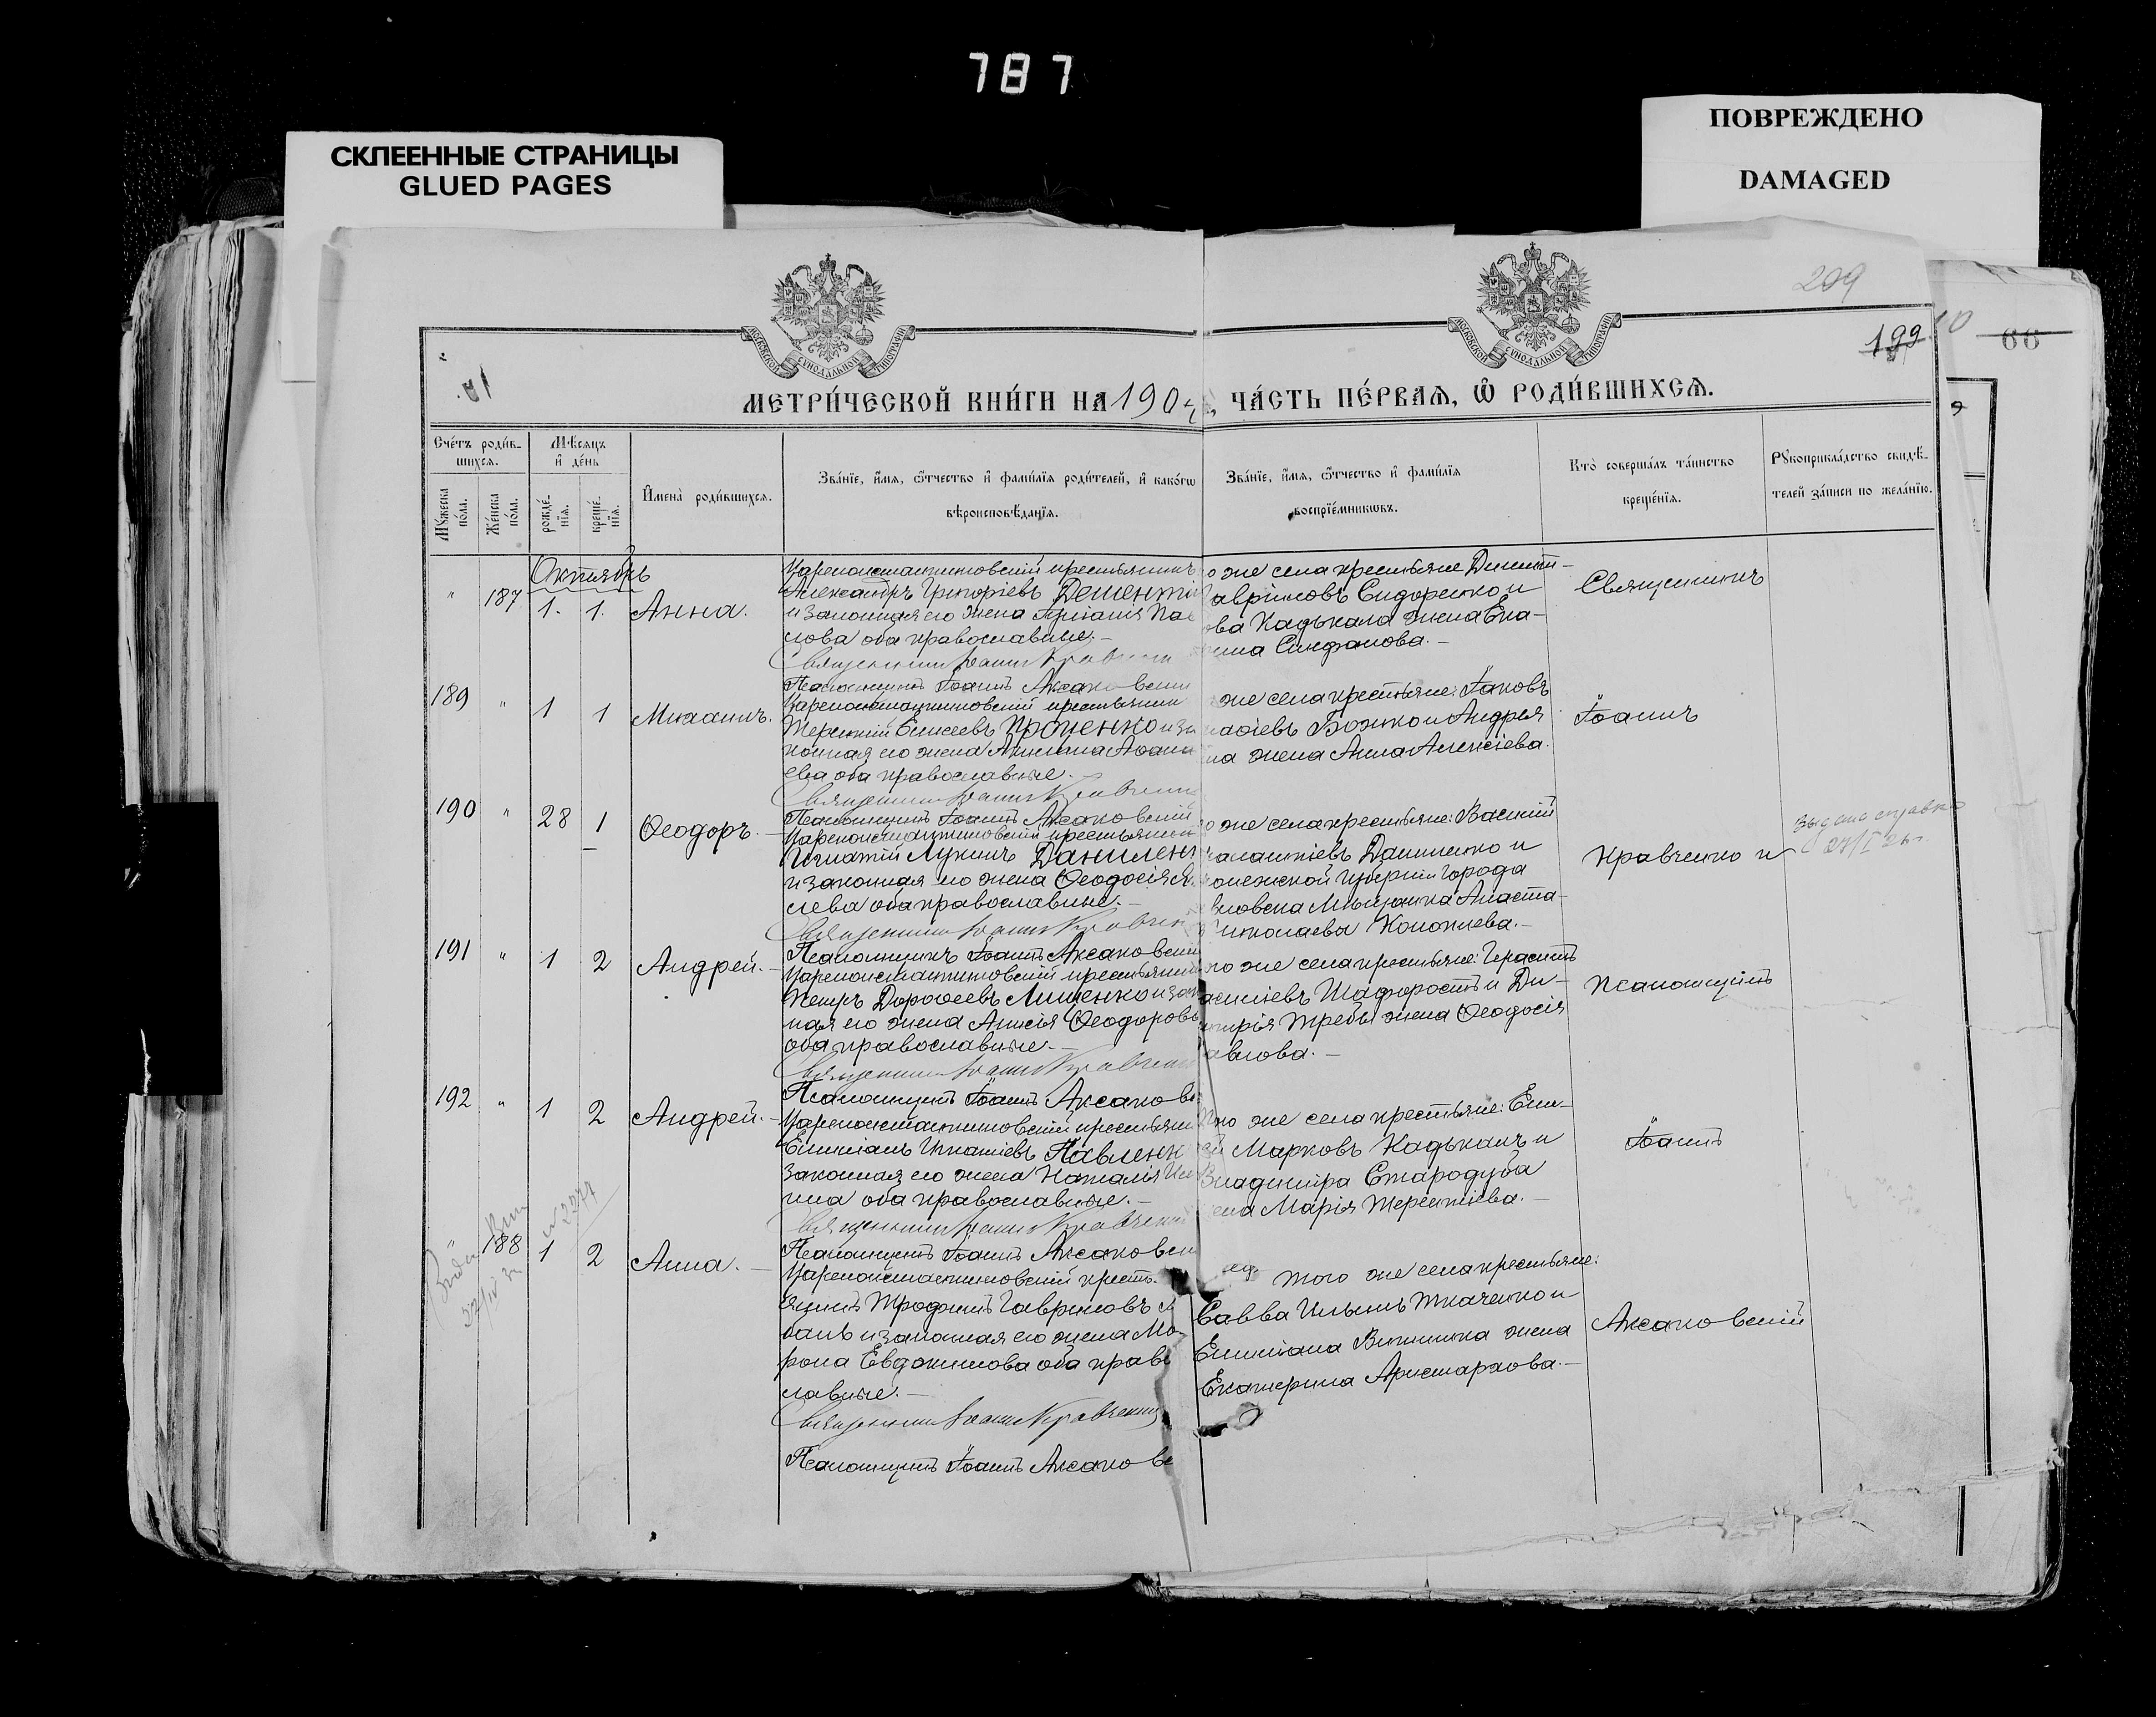 787
СКЛЕЕННЫЕ СТРАНИЦЫ
GLUED PAGES
ПОВРЕЖДЕНО
DAMAGED
209
199
66
МОСКОВСКОЙ СѴНОДАЛЬНОЙ ТИПОГРАФІИ
МОСКОВСКОЙ СѴНОДАЛЬНОЙ ТИПОГРАФІИ
МЕТРИ́ЧЕСКОЙ КНИ́ГИ НА 190
, ЧА́СТЬ ПЕ́РВАѦ, Ѡ РОДИ́ВШИХСѦ.
Сче́тъ роди́в-
шихсѧ.
Мꙋжеска по́ла.
Же́нска по́ла.
Мѣсѧцъ и де́нь
рожде́нїѧ.
креще́нїѧ.
Имена̀ роди́вшихсѧ.
Зва́нїе, и́мѧ, ѻ́тчество и фами́лїѧ роди́телей, и како́гѡ
вѣроисповѣ́данїѧ.
Зва́нїе, и́мѧ, ѻ́тчество и фами́лїѧ
воспрїе́мникѡвъ.
Кто̀ соверша́лъ та́инство
креще́нїѧ.
Рꙋкоприкла́дство свидѣ́-
телей за́писи по жела́нїю.
Октябрь
" 187 1. 1. Анна.
Цареконстантиновскій крестьянинъ
Александръ Григоріевъ Дементі
и законная его жена
лова оба православные.–
Священникъ Іоаннъ Кравченк
Псаломщикъ Іоаннъ Аксаковскій
о же села крестьяне Димит-
авріиловъ Сидоренко и
ова Кадькала жена Ека-
рина Стефанова.–
Священникъ
189 " 1 1 Михаилъ.
Цареконстантиновскій крестьянин
Терентій Елисеевъ Проценко и за
конная его жена Акилина Афана
ева оба православные.
Священникъ Іоаннъ Кравченк
Псаломщикъ Іоаннъ Аксаковскій
же села крестьяне: Іаковъ
Божко и Андрея
на жена Анна Алексіева.
Іоаннъ
190 " 28 1 Ѳеодоръ.
Цареконстантиновскій крестьянин
Игнатій Лукинъ Даниленк
и законная его жена Ѳеодосія
лева оба православные.–
Священникъ Іоаннъ Кравченк
Псаломщикъ Іоаннъ Аксаковскій
о же села крестьяне: Василій
Даниленко и
онежской губерніи города
вловска Мѣщанка Анаста-
Николаева Коноплева.–
Кравченко и
выдана справка
191 " 1 2 Андрей.–
Цареконстантиновскій крестьянин
Петръ Дороѳеевъ Лищенко и зак
ная его жена Анисія Ѳеодоров
оба православные.–
Священникъ Іоаннъ Кравченк
Псаломщикъ Іоаннъ Аксаков
го же села крестьяне: Герасимъ
асиліевъ Шафоростъ и Ди-
митрія Требы жена Ѳеодосія
авлова.–
псаломщикъ
192 " 1 2 Андрей.–
Цареконстантиновскій крестьяни
Емиліанъ Игнатіевъ Павленк
законная его жена Наталія
нна оба православные.–
Священникъ Іоаннъ Кравченк
Псаломщикъ Іоаннъ Аксаковск
го же села крестьяне: Ели-
сей Марковъ Кадькалъ и
Владиміра Стародуба
ена Марія Терентіева.–
Іоаннъ
" 188 1 2 Анна.–
Цареконстантиновскій кресть-
янинъ Трофимъ Гавріиловъ
банъ и законная его жена Ма
рона Евдокимова оба прав
славные.–
Священникъ Іоаннъ Кравченк
Псаломщикъ Іоаннъ Аксаков
того же села крестьяне:
Савва Ильинъ Ткаченко и
Емиліана Винника жена
Екатерина Аристархова.–
Аксаковскій